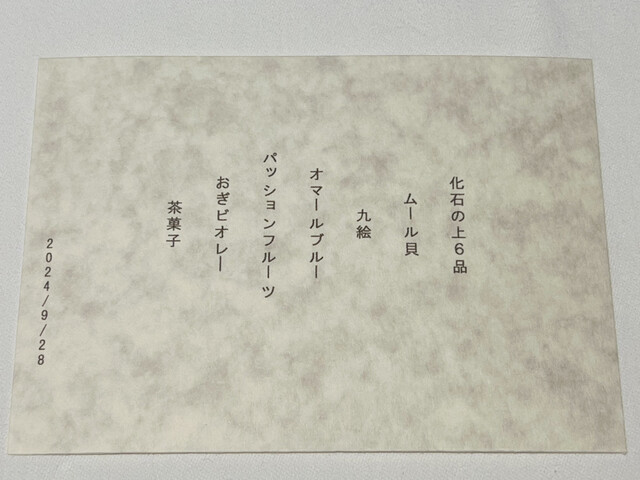 化石の上6品
ムール貝
九絵
オマールブルー
パッションフルーツ
おぎビオレー
茶菓子
2024/9/28